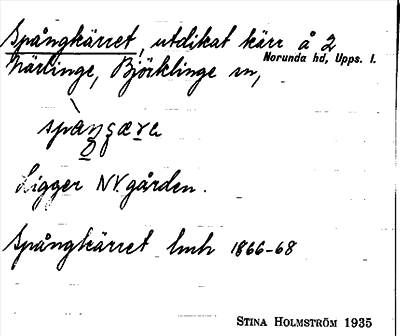 Spångkärret, utdikat kärr å 2
Norunda hd, Upps. l.
Närlinge, Björklinge sn,
Ligger NV. gården.
Spångkärret lmh 1866-68
STINA HOLMSTRÖM 1935